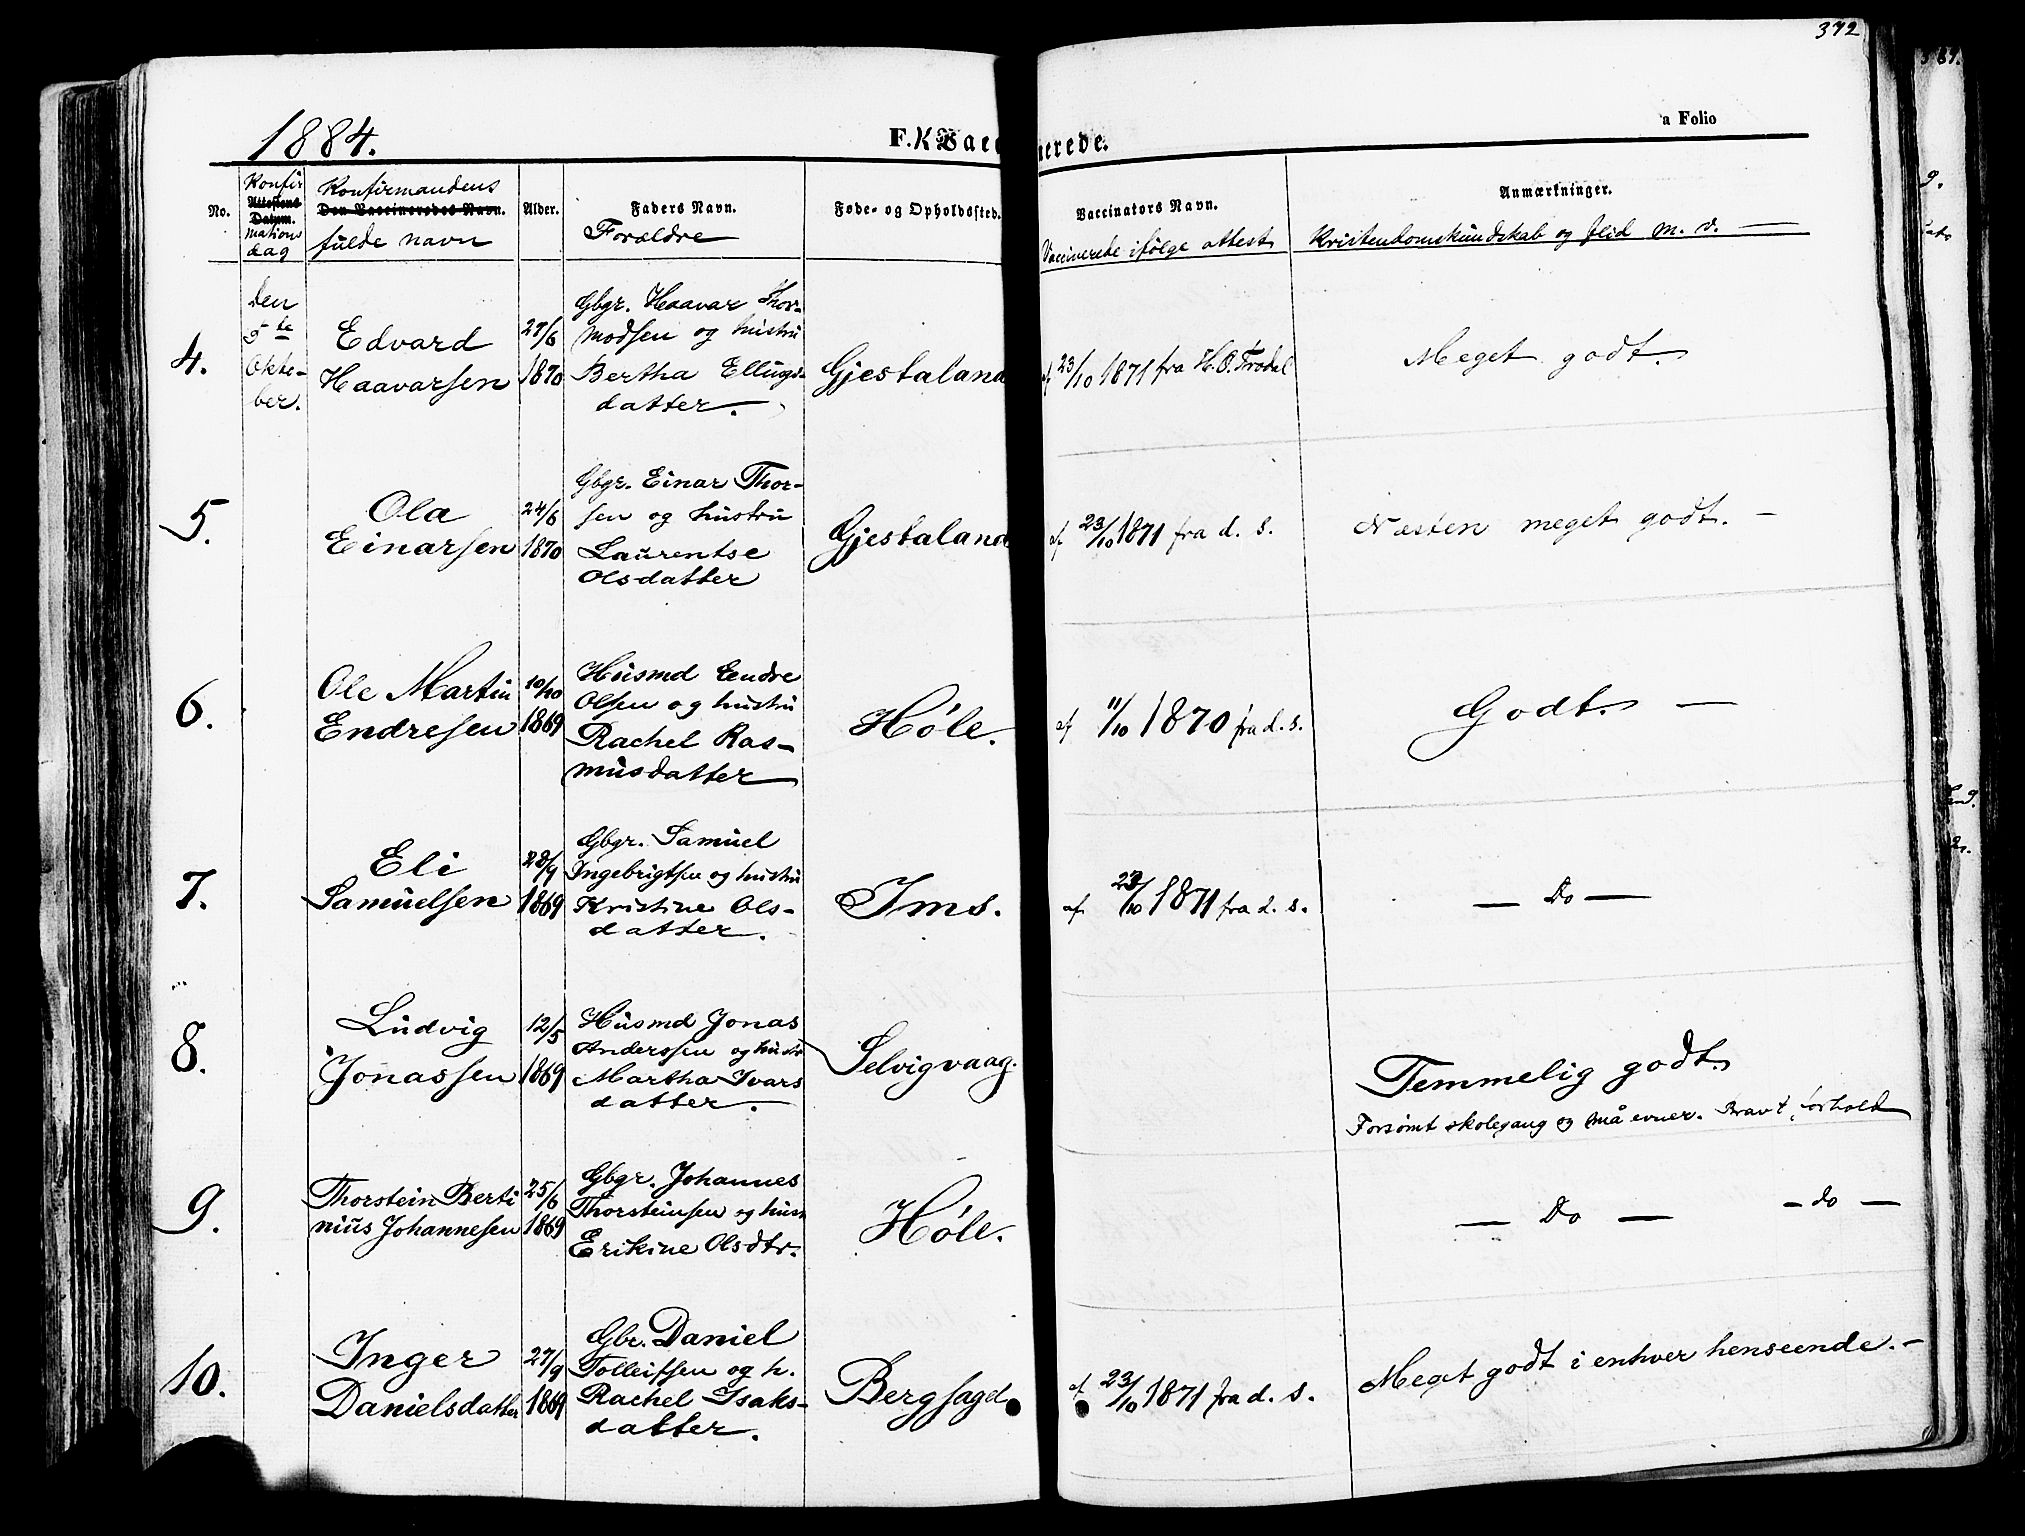 372
1884.
a Folio
No.
Konfir
Attestens
Datum.
mations
dag
Konfirmandens
Den Vaccineredes Navn.
fulde navn
Alder.
Faders Navn.
Forældre
Føde- og Opholdssted.
Vaccinators Navn.
Vaccinerede ifølge attest
Anmærkninger.
Kristendomskundskab og flid m. v. —
4.
Den
5te
Okto-
ber.
Edvard
Haavarsen
27/6
1870
Gbgr. Haavar Thor-
modsen og hustru
Bertha Ellings-
datter.
Gjestaland
af 23/10 1871 fra H. O. Frodal
Meget godt.
5.
Ola
Einarsen
24/6
1870
Gbgr. Einar Thor-
sen og hustru
Laurentse
Olsdatter
Gjestaland
af 23/10 1871 fra d. s.
Næsten meget godt. —
6.
Ole Martin
Endresen
10/10
1869
Husmd Endre
Olsen og hustru
Rachel Ras-
musdatter
Høle.
af 11/10 1870 fra d. s.
Godt. —
7.
Eli
Samuelsen
28/9
1869
Gbgr. Samuel
Ingebrigtsen og hustru
Kristine Ols-
datter.
Ims.
af 23/10 1871 fra d. s.
— Do —
8.
Ludvig
Jonassen
12/5
1869
Husmd Jonas
Anderssen og hustr
Martha Ivars
datter.
Selvigvaag.
Temmelig godt.
Forsømt skolegang og små evner. Bravt forhold
9.
Thorstein Berti
nius Johannesen
25/6
1869
Gbgr. Johannes
Thorsteinsen og hustr
Erikine Olsdtr.
Høle.
— Do — – do —
10.
Inger
Danielsdatter
27/9
1869
Gbr. Daniel
Tolleifsen og h.
Rachel Isaks-
datter.
Bergsagel
af 23/10 1871 fra d. s.
Meget godt i enhver henseende. –